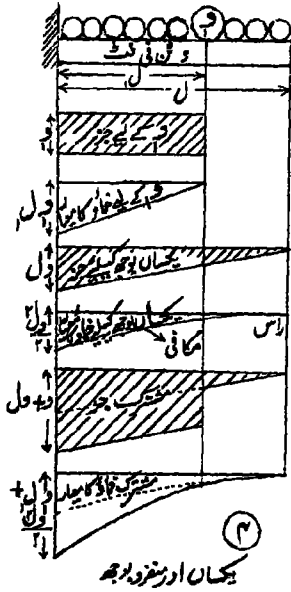 و₁
و ٹن فی فٹ
ل₁
ل
و₁ کے لیے جز
و₁
و₁ کے لیے خماؤ کا معیار
و₁ ل₁
یکساں بوجھ کیلئے جز
و ل
یکساں بوجھ کیلئے خماؤ کا معیار
و ل۲
۲
راس
مکافی
مشترک جز
و₁ + و ل
مشترک خماؤ کا معیار
و₁ ل₁ +
و ل۲
۲
۴
یکساں اور منفرد بوجھ